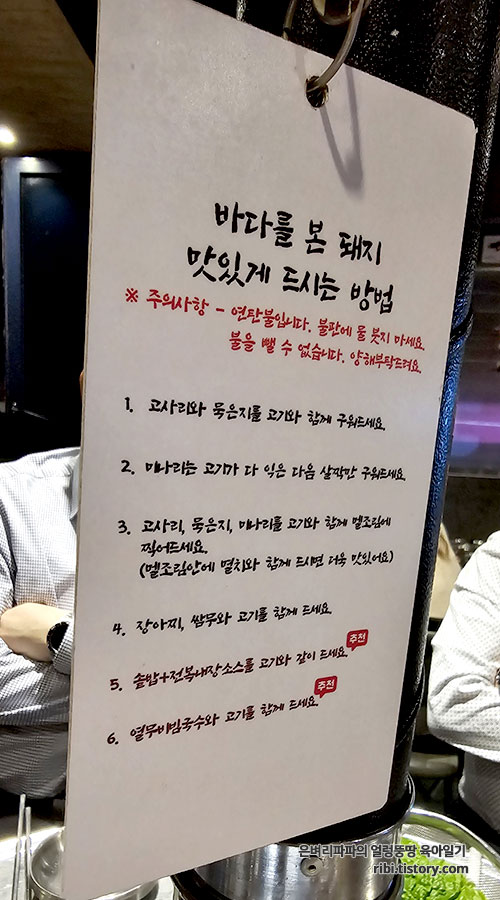 바다를 본 돼지
맛있게 드시는 방법
※ 주의사항 - 연탄불입니다. 불판에 물 붓지 마세요.
불을 뺄 수 없습니다. 양해부탁드려요.
1. 고사리와 묵은지를 고기와 함께 구워드세요.
2. 미나리는 고기가 다 익은 다음 살짝만 구워드세요.
3. 고사리, 묵은지, 미나리를 고기와 함께 멜조림에
찍어드세요.
(멜조림안에 멸치와 함께 드시면 더욱 맛있어요)
4. 장아찌, 쌈무와 고기를 함께 드세요.
추천
5. 솥밥+전복내장소스를 고기와 같이 드세요.
추천
6. 열무비빔국수와 고기를 함께 드세요.
은벼리파파의 얼렁뚱땅 육아일기
ribi.tistory.com